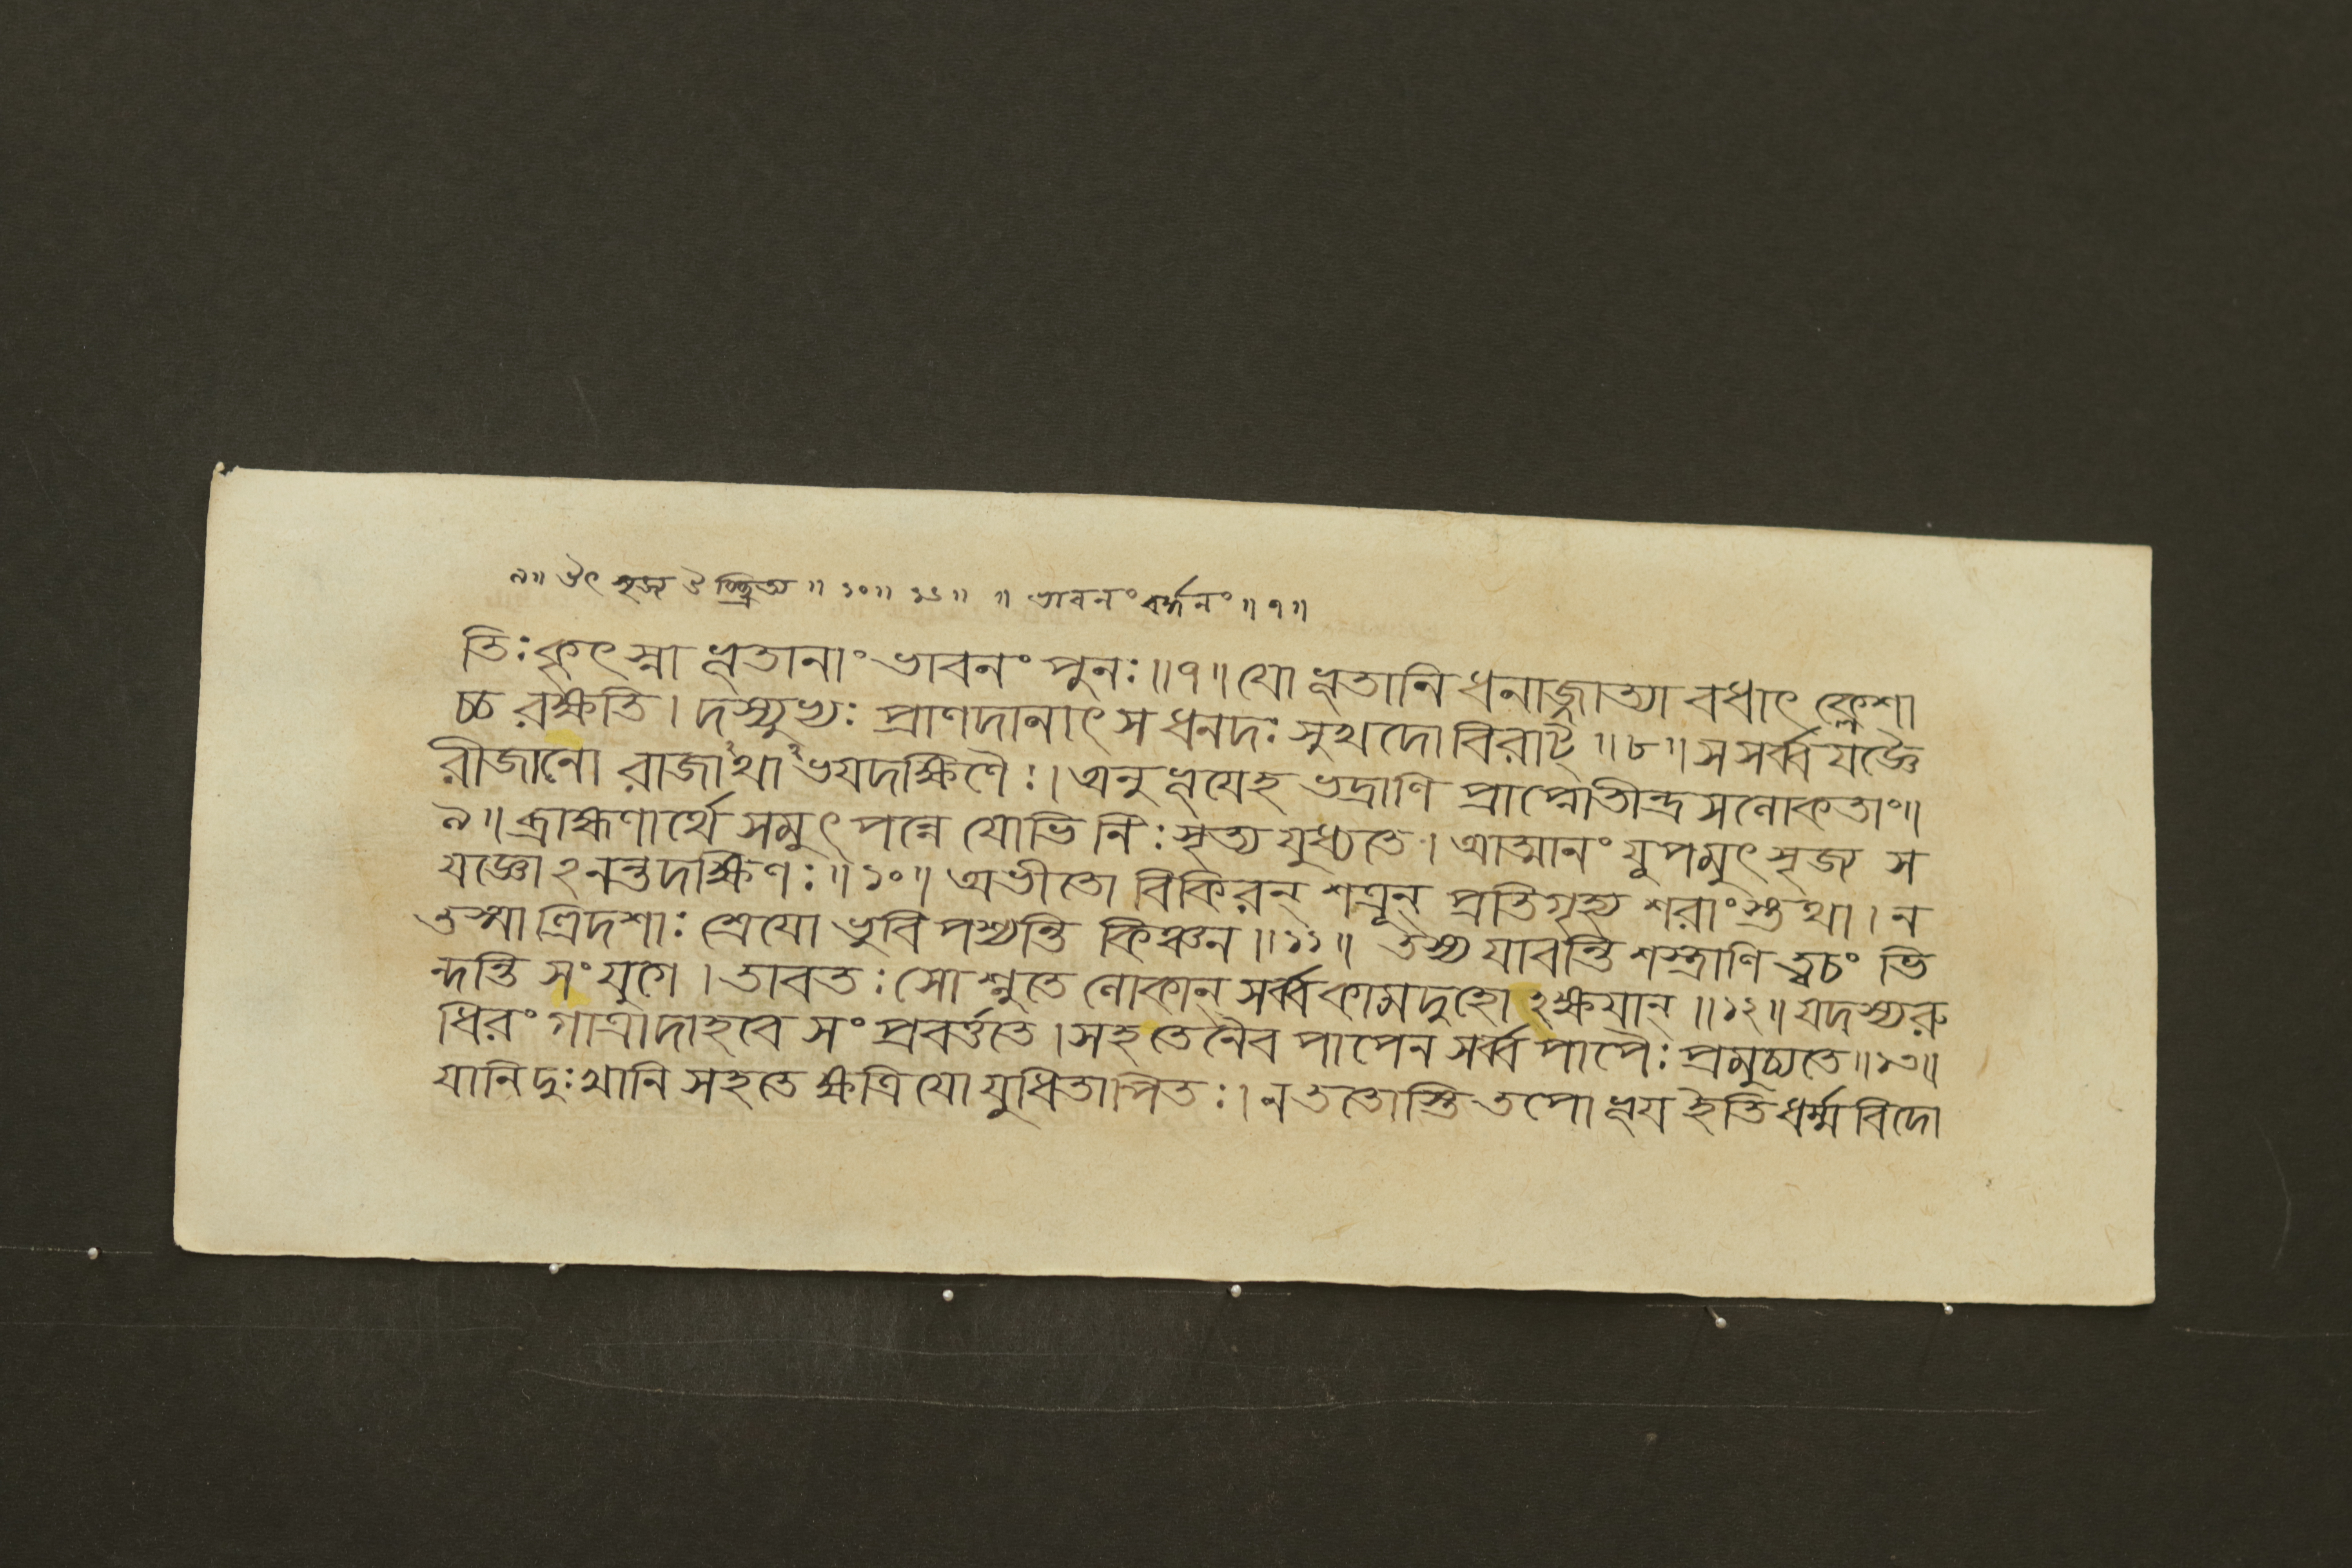 ৯॥ উৎসৃজ্য উচ্ছ্রিত্য ॥ ১০॥ ১১॥ ॥ ভাবনং বর্দ্ধনং ॥৭॥
তিঃ কৃৎস্না ভূতানাং ভাবনং পুনঃ॥৭॥ যো ভূতানি ধনাজ্জ্যাত্যা বধাৎ ক্লেশা
চ্চ রক্ষতি। দস্যুভ্যঃ প্রাণদানাৎ স ধনদঃ সুখদো বিরাট্ ॥৮॥ স সর্ব্ব যজ্ঞৈ
রীজানো রাজাঽথাঽভয়দক্ষিণৈঃ। অনুভূয়েহ ভদ্রাণি প্রাপ্নোতীন্দ্রসলোকতাং॥
৯॥ ব্রাহ্মণার্থে সমুৎপন্নে যোভিনিঃসৃত্য যুধ্যতে। আত্মানং যূপমুৎসৃজ্য স
যজ্ঞোঽনন্তদক্ষিণঃ॥১০॥ অভীতো বিকিরন্ শত্রূন্ প্রতিগৃহ্য শরাংস্তথা। ন
তস্মাত্রিদশাঃ শ্রেয়ো ভুবি পশ্যন্তি কিঞ্চন॥১১॥ তস্য যাবন্তি শস্ত্রাণি ত্বচং ভি
ন্দন্তি সংযুগে। তাবতঃ সোশ্নুতে লোকান্ সর্ব্বকামদুহোঽক্ষয়ান্ ॥১২॥ যদস্য রু
ধিরং গাত্রাদাহবে সংপ্রবর্ত্ততে। সহ তেনৈব পাপেন সর্ব্বপাপৈঃ প্রমুচ্যতে॥১৩॥
যানি দুঃখানি সহতে ক্ষত্রিয়ো যুধি তাপিতঃ। ন ততোস্তি তপো ভূয় ইতি ধর্ম্মবিদো